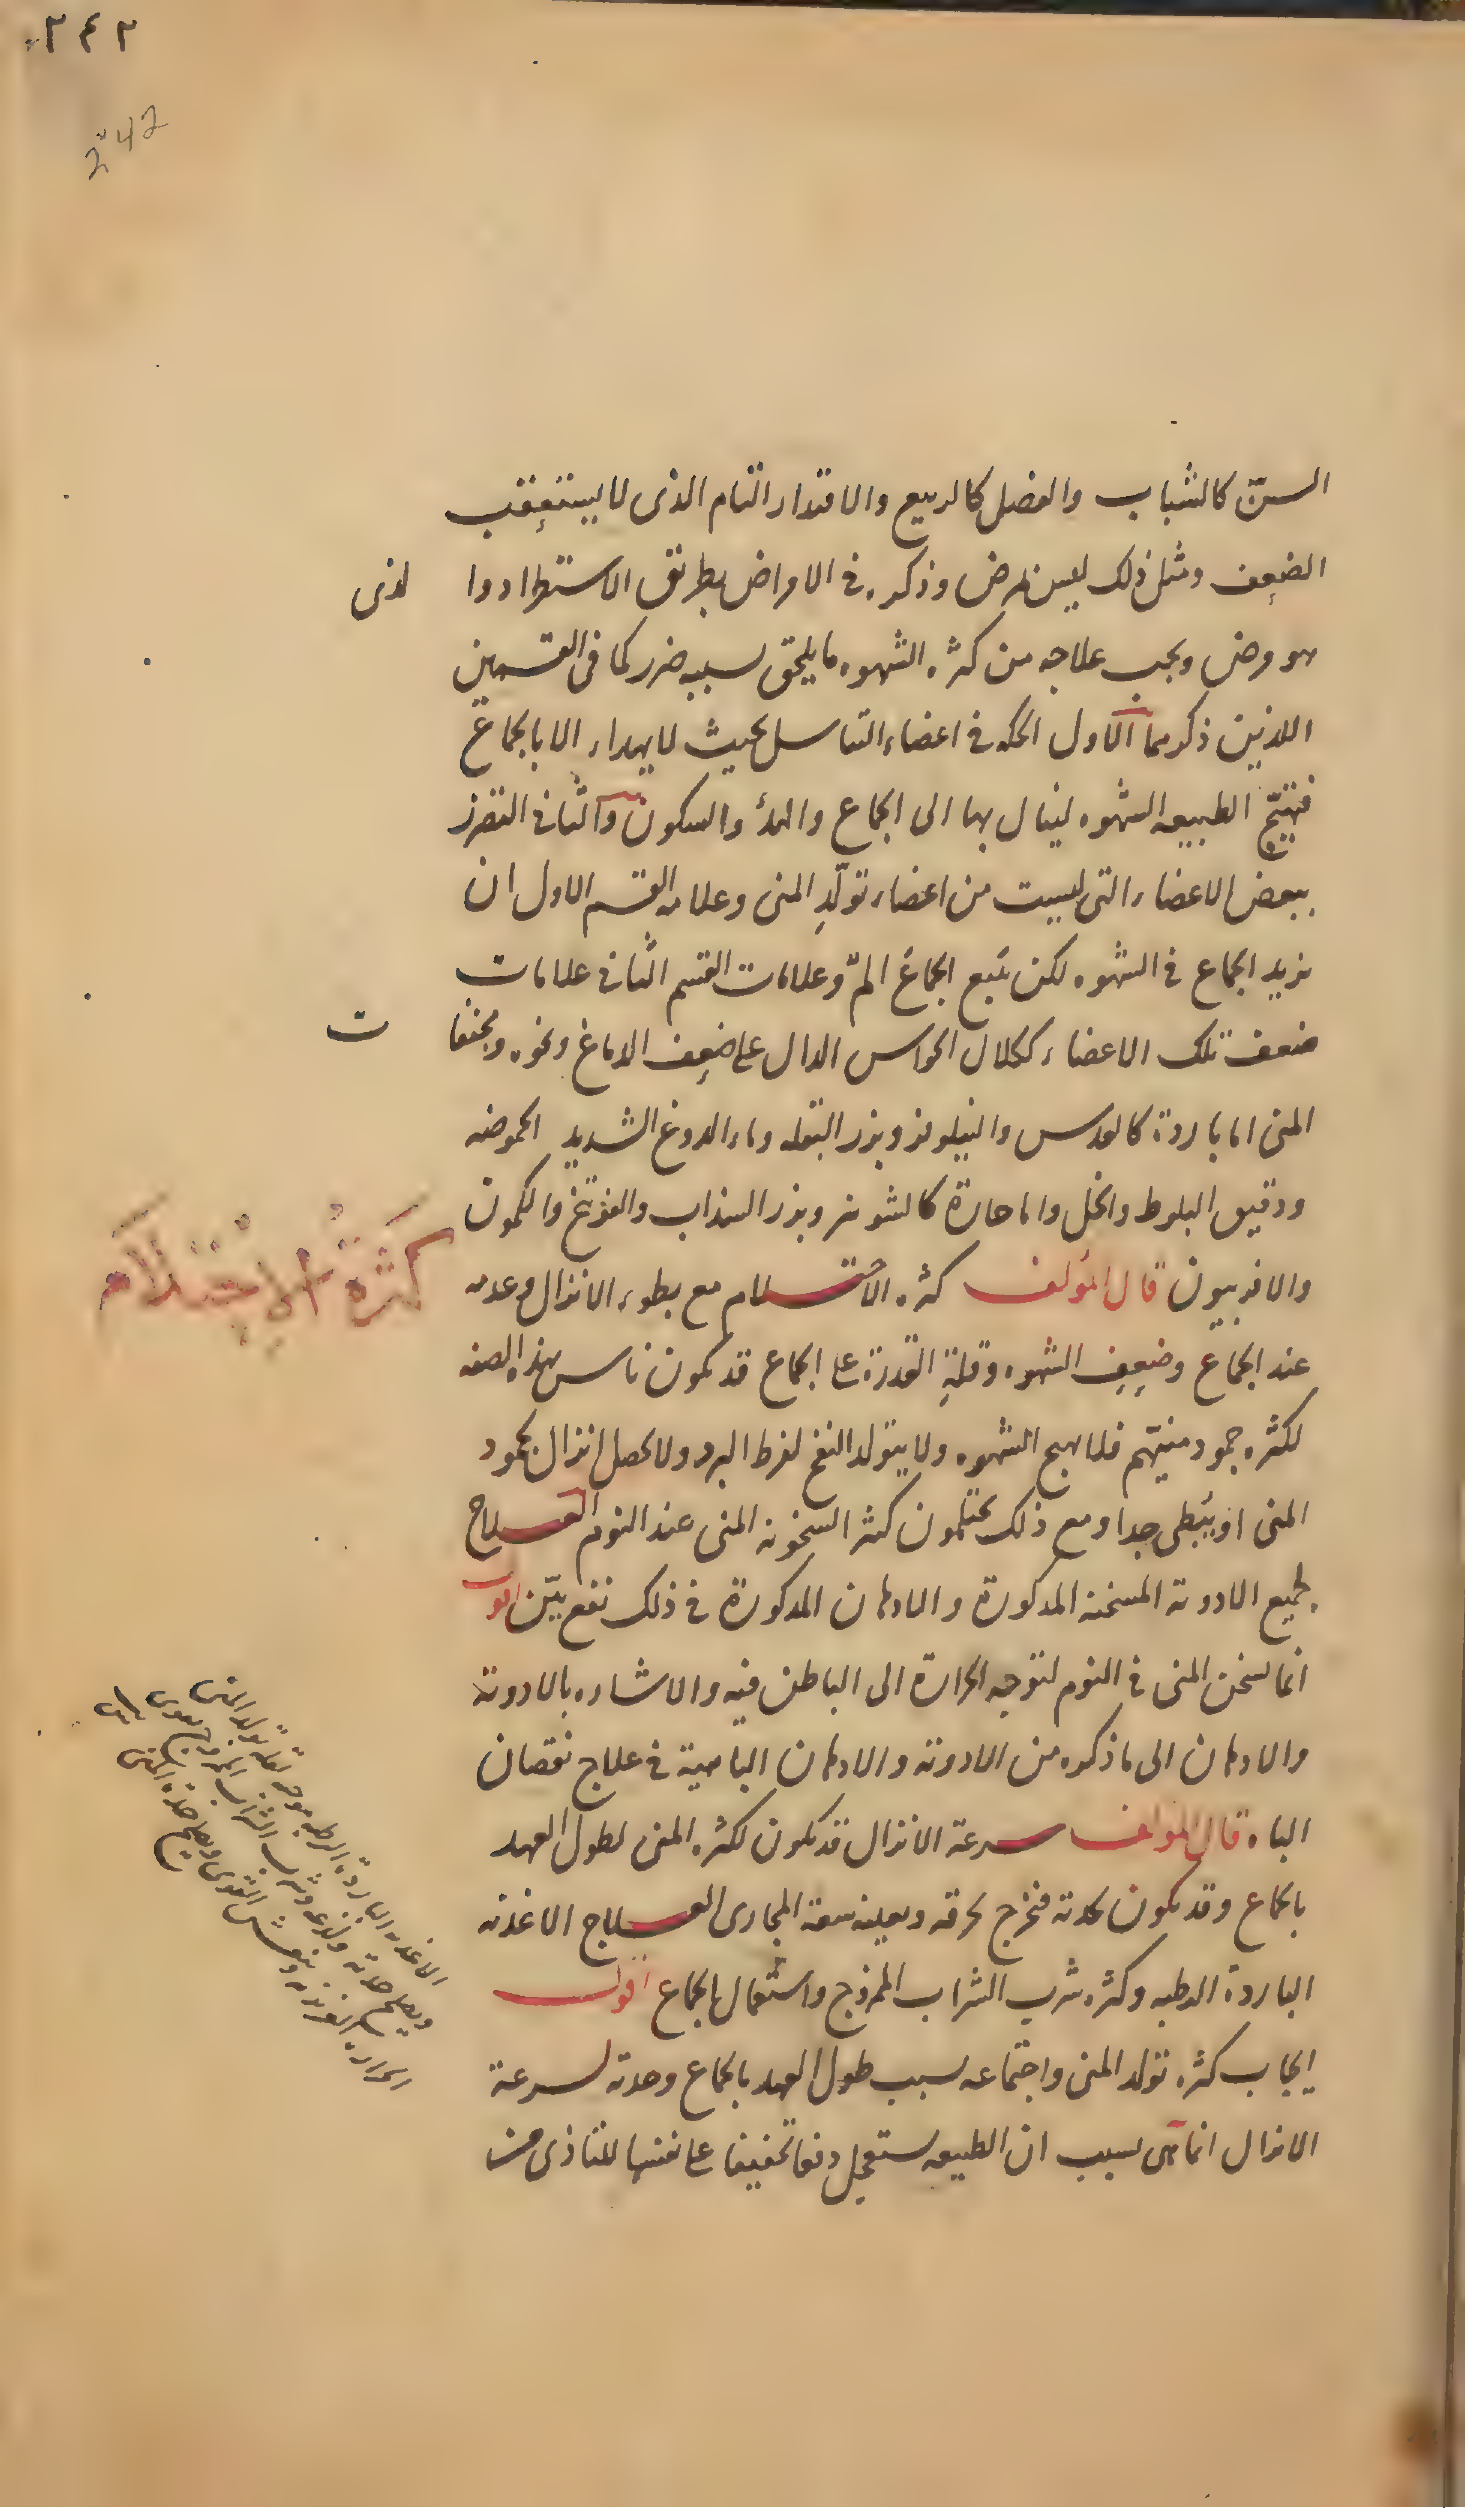 ٢٤٢
242
السنّ كالشباب والفصل كالربيع والاقتدار التام الذى لا يستعقب
الضعف ومثل ذلك ليس بمرض وذكره فى الامراض بطريق الاستطراد وا لذى
هو مرض ويجب علاجه من كثره الشهوه ما يلحق بسببه ضرر كما فى القسمين
اللذين ذكرهما الاول الحكه فى اعضاء التناسل بحيث لا يهداء الا بالجماع
فتهيّج الطبيعه الشهوه لينال بها الى الجماع والهدأ والسكون والثانى التضرر
ببعض الاعضاء التى ليست من اعضاء تولّد المنى وعلامه القسم الاول ان
يزيد الجماع فى الشهوه لكن يتبع الجماع الم وعلامات القسم الثانى علامات
ضعف تلك الاعضاء ككلال الحواس الدال على ضعف الدماغ ونحوه ومجففا ت
المنى اما بارده كالعدس والنيلوفر وبزر البقله وماء الدوغ الشديد الحموضه
ودقيق البلوط والخل واما حارة كالشونيز وبزر السذاب والفوتنج والكمون
والافربيون قال المؤلف كثره الاحتلام مع بطوء الانزال وعدمه
كَثْرَةُ الاِحْتِلاَم
عند الجماع وضعف الشهوه وقلة القدرة على الجماع قد يكون ناس بهذه الصفه
لكثره جمود منيّهم فلا يهيج الشهوه ولا يتولد النفخ لفرط البرد ولا يحصل انزال لجمود
المنى او يبطى جدا ومع ذلك يحتلمون كثيرا لسخونه المنى عند النوم العلاج
لجميع الادويه المسخنه المذكورة والادهان المذكورة فى ذلك نفع بيّن اقول
انما يسخن المنى فى النوم لتوجه الحرارة الى الباطن فيه والاشاره بالادوية
والادهان الى ما ذكره من الادوية والادهان الباهية فى علاج نقصان
الباه قال المؤلف سرعة الانزال قد يكون لكثره المنى لطول العهد
بالجماع وقد يكون لحدته فيخرج بحرقه ويعينه سعة المجارى العلاج الاغذيه
الباردة الرطبه وكثره شرب الشراب الممزوج واستعمال الجماع اقول
ايجاب كثره تولد المنى واجتماعه بسبب طول العهد بالجماع وحدته لسرعة
الانزال انما هى بسبب ان الطبيعه يستعجل دفعا تخفيفا على نفسها للتاذى من
الاغذيه الباردة الرطبه موجبه لقله تولد المنى
ويصلح حدته ولذعه وشرب الشراب الممزوج يقوى
الحراره الغريزيه وينعش القوى ويصلح حدة المنى